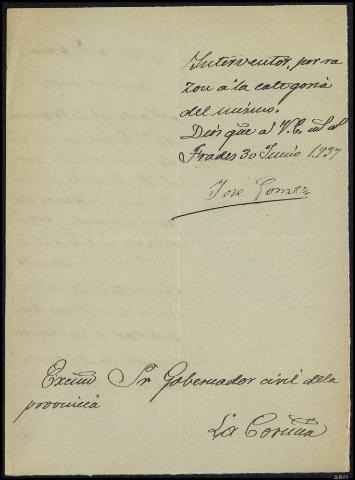 Interventor, por ra
zon á la categoria
del mismo.
Dios que á V.E. ms as
Frades 30 Junio 1.937
José Gomez
Excmo Sr Gobernador civil dela
provincia
La Coruña